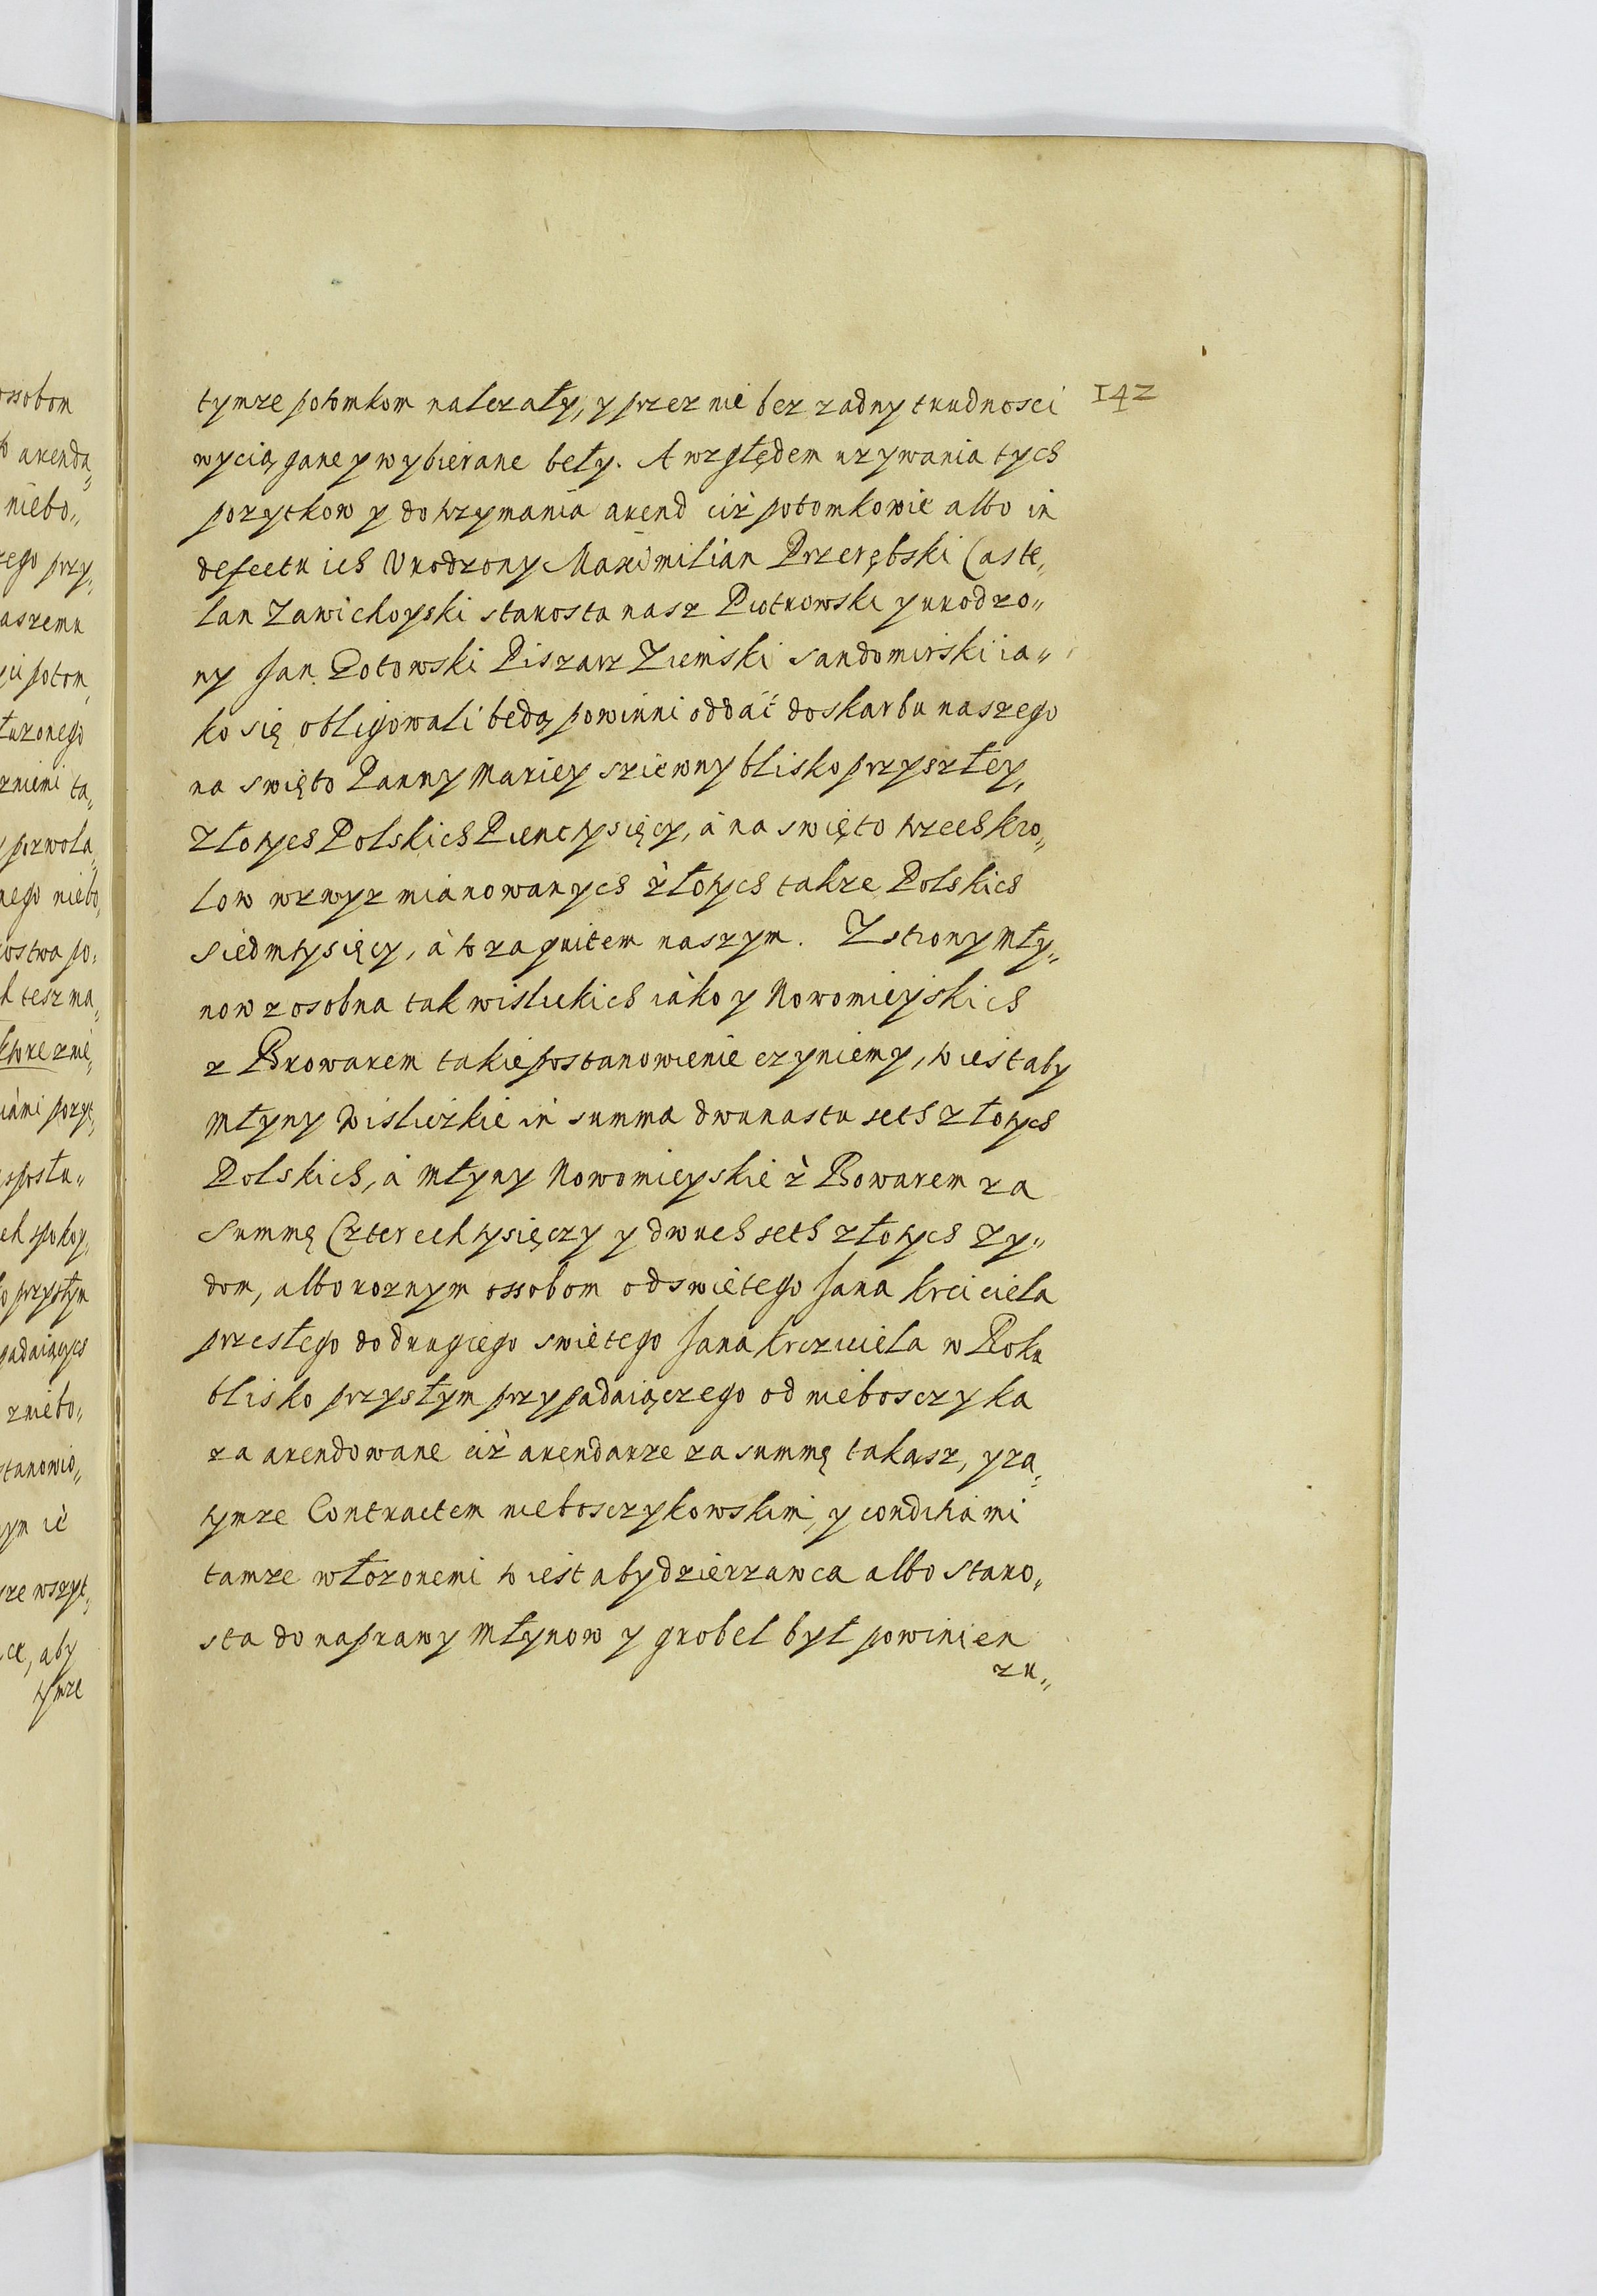 142
tymze potomkom nalezały, y przez nie bez zadny trudnosci
wyciągane y wybierane beły. A względem uzywania tych
pozytkow y dotrzymania arend ciż potomkowie albo in
defectu ich Urodzony Maximilian Przerębski Caste„
lan Zawichoyski starosta nasz Piotrowski y urodzo„
ny Jan Potowski Pisarz Ziemski Sandomirski ia„
ko się obligowali bedą powinni oddać do skarbu naszego
na swięto Panny Mariey sziewny blisko przyszłey,
Złotych Polskich Pienctysięcy, á na swięto trzech kro„
low wzwyz mianowanych złotych takze Polskich
siedmtysięcy, á to za quitem naszym. Z strony Mły„
now zosobna tak wislickich iáko y Nowomieyskich
z Browarem takie postanowienie czyniemy, to iest aby
Młyny Wisliczkie in summa dwunastu seth złotych
Polskich, á Młyny Nowomieyskie z Browarem za
Summę Czterech tysięczy y dwuch seth złotych Zy„
dom, albo roznym ossobom od swiętego Jana krciciela
przesłego do drugiego swiętego Jana krzciciela w Roku
blisko przysłym przypadaiączego od niebosczyka
za arendowane ciż arendarze za summę takąsz, y za„
tymze Contractem niebosczykowskim, y conditiami
tamze włozonemi to iest aby dzierzawca albo staro„
sta do naprawy Młynow y grobel był powinien
zu„